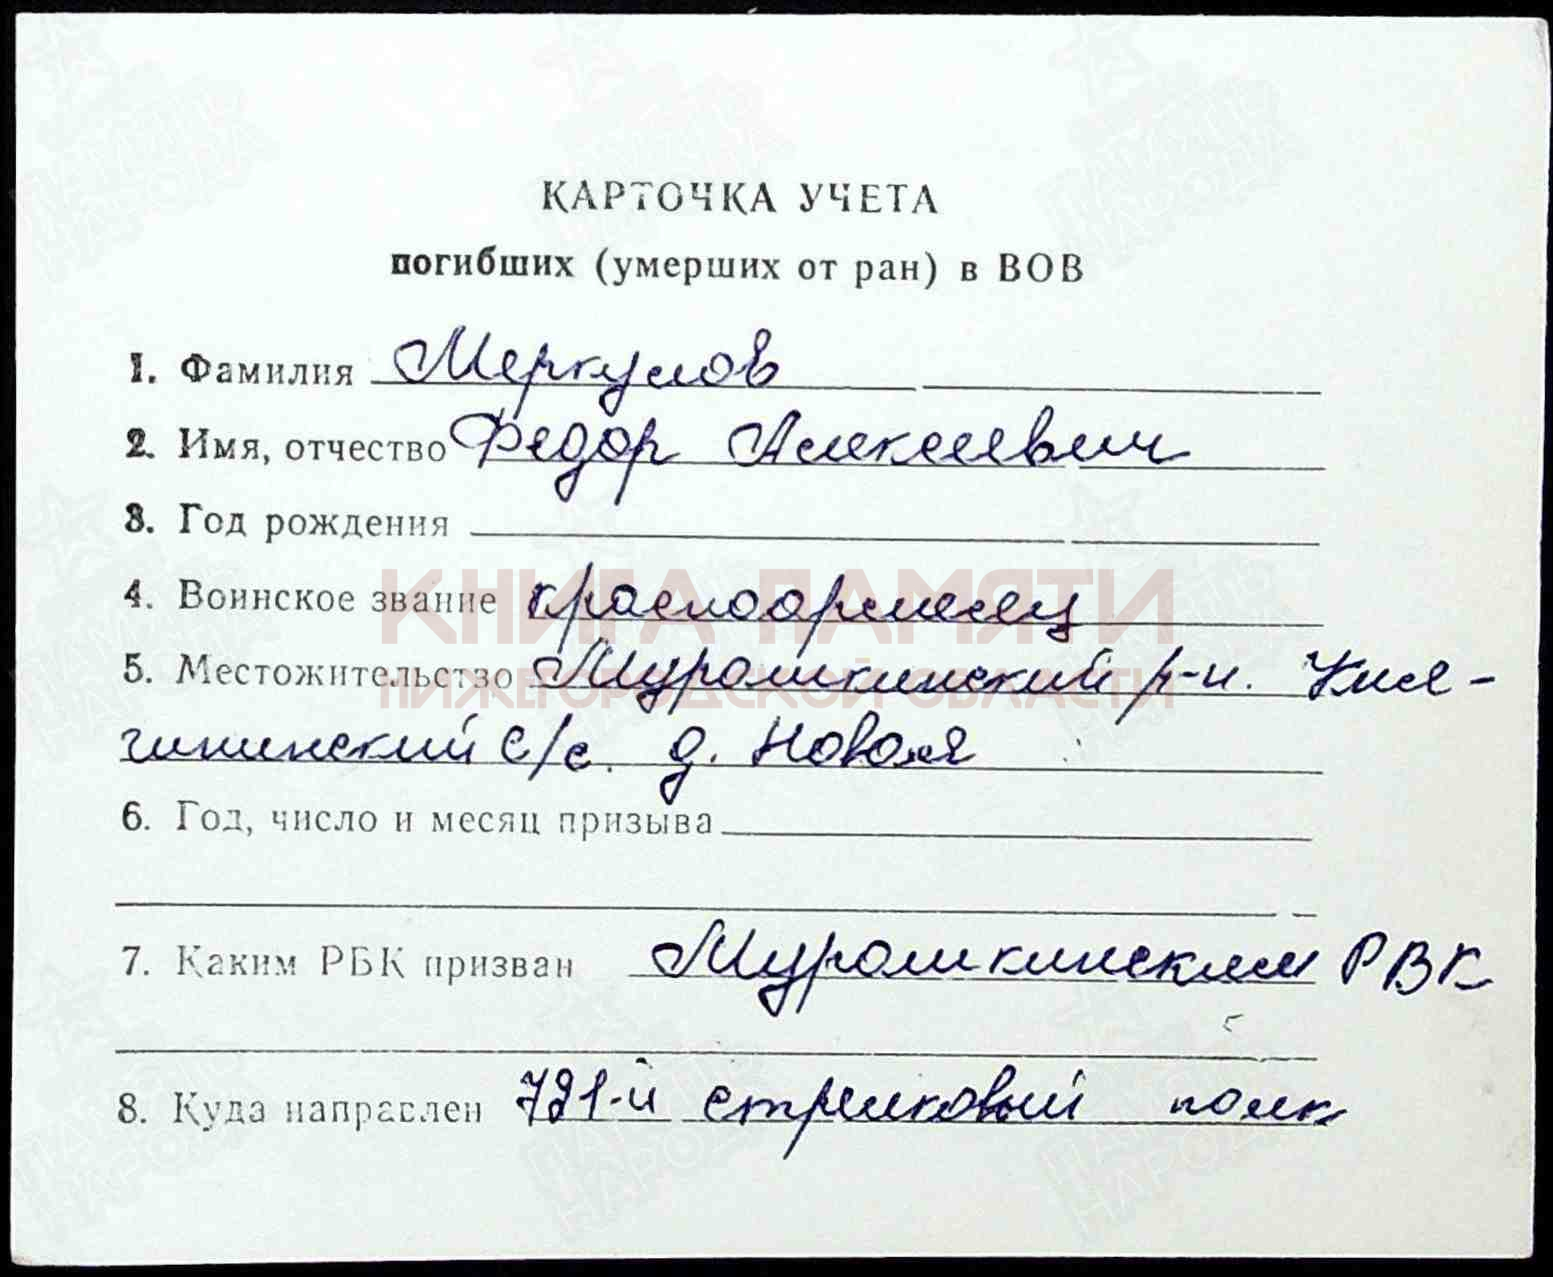 КАРТОЧКА УЧЕТА
погибших (умерших от ран) в ВОВ
1. Фамилия Меркулов
2. Имя, отчество Федор Алексеевич
3. Год рождения
4. Воинское звание красноармеец
КНИГА ПАМЯТИ
5. Местожительство Мурашкинский р-н.
НИЖЕГОРОДСКОЙ ОБЛАСТИ
с/с. д. Новая
6. Год, число и месяц призыва
7. Каким РВК призван Мурашкинским РВК
8. Куда направлен стрелковый полк
ПАМЯТЬ НАРОДА